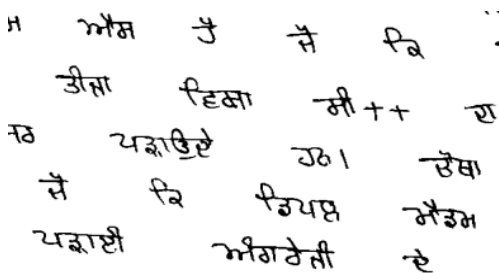 ਐਸ ਹੈ ਜੋ ਕਿ
ਤੀਜਾ ਵਿਸ਼ਾ ਸੀ++ ਦਾ
ਪੜ੍ਹਾਉਂਦੇ ਹਨ। ਚੌਥਾ
ਜੋ ਕਿ ਡਿਂਪਲ ਮੈਡਮ
ਪੜ੍ਹਾਈ ਅੰਗਰੇਜੀ ਦੇ